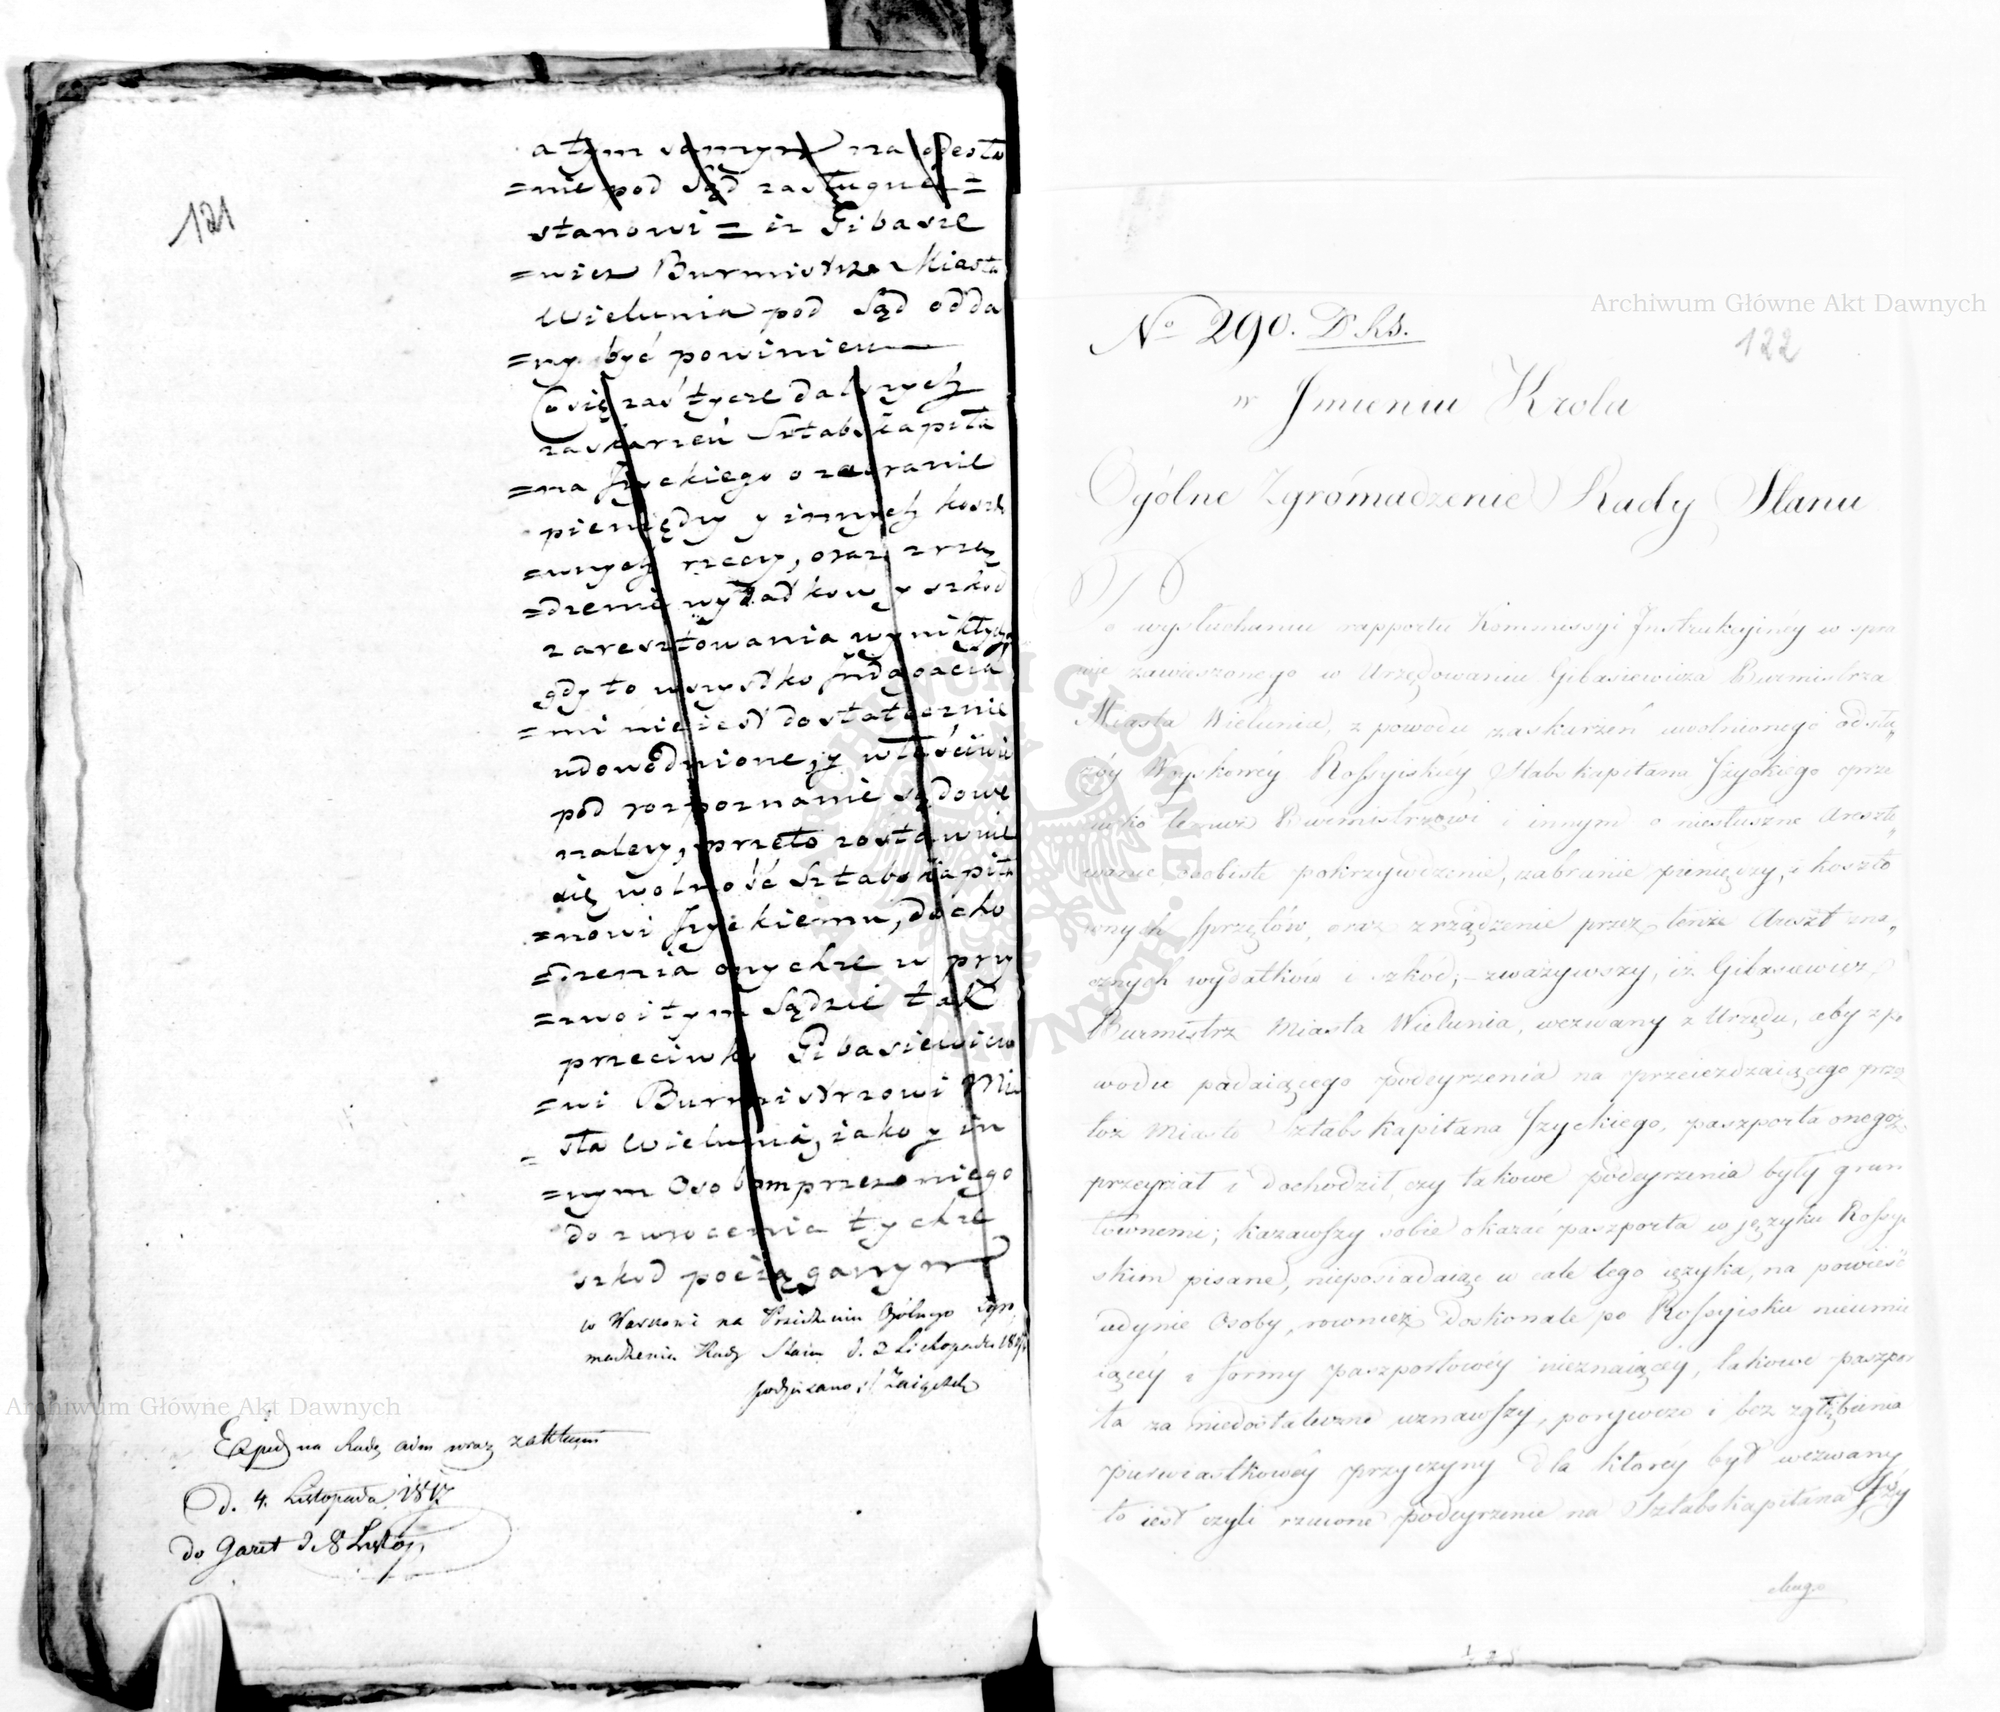 121
a tym samym na odesła
=nie pod Sąd zasługuie=
stanowi = iż Gibasie
=wicz Burmistrz Miasta
Wielunia pod Sąd odda
=ny być powinien
Co się zaś tycze dalszych
zaskarzeń Sztabskapita
=na Szyckiego o zabranie
pieniędzy y innych koszto
=wnych rzeczy, oraz zrzą
=dzenie wydatków y szkod
z aresztowania wynikłych
gdy to wszystko
=mi nie iest dostatecznie
udowodnione, y właściwie
pod rozpoznanie sądowe
należy, przeto zostawuie
się wolność Sztabskapita
=nowi Szyckiemu, docho
=dzenia onychże w przy
=zwoitym Sądzie tak
przeciwko Gibasiewiczo
=wi Burmistrzowi Mia
sta Wielunia, iako y in
=nym Osobom przez niego
do zwrocenia tychże
szkod pociąganym
w Warszawie na Posiedzeniu Ogólnego Zgro
madzenia Rady Stanu d. 2 Listopada 1817
podpisano Zaiączek
Exped na Radę adm wraz
d. 4. Listopada 1817
do Gazet d 8 Listop
Archiwum Główne Akt Dawnych
ARCHIWUM GŁÓWNE AKT DAWNYCH
Archiwum Główne Akt Dawnych
No 290. D. Ks.
122
w Jmieniu Krola
Ogólne Zgromadzenie Rady Stanu
Po wysłuchaniu rapportu Kommissyi Instrukcyinéy w spra
wie zawieszonego w Urzędowaniu Gibasiewicza Burmistrza
Miasta Wielunia, z powodu zaskarżeń uwolnionego od słu„
żby Woyskowéy Rossyiskiéy Stabskapitana Szyckiego prze
ciwko temuż Burmistrzowi i innym o niesłuszne Areszto„
wanie, osobiste pokrzywdzenie, zabranie pieniędzy, i koszto
wnych sprzętów, oraz zrządzenie przez tenże Areszt zna„
cznych wydatków i szkod; – zważywszy, iż Gibasiewicz
Burmistrz Miasta Wielunia, wezwany z Urzędu, aby z po
wodu padaiącego podeyrzenia na przeieżdzaiącego przez
toż Miasto Sztabskapitana Szyckiego, paszporta onegoż
przeyrzał i dochodził, czy takowe podeyrzenia były grun
townemi; kazawszy sobie okazać paszporta w języku Rossyi
skim pisane, nieposiadaiąc w cale tego ięzyka, na powieść
iedynie Osoby, rownież doskonale po Rossyisku nieumie
iącéy i formy paszportowéy nieznaiącéy, takowe paszpor
ta za niedostateczne uznawszy, porywczo i bez zgłębienia
pierwiastkowéy przyczyny dla któréy był wezwany,
to iest czyli rzucone podeyrzenie na Sztabskapitana Szy